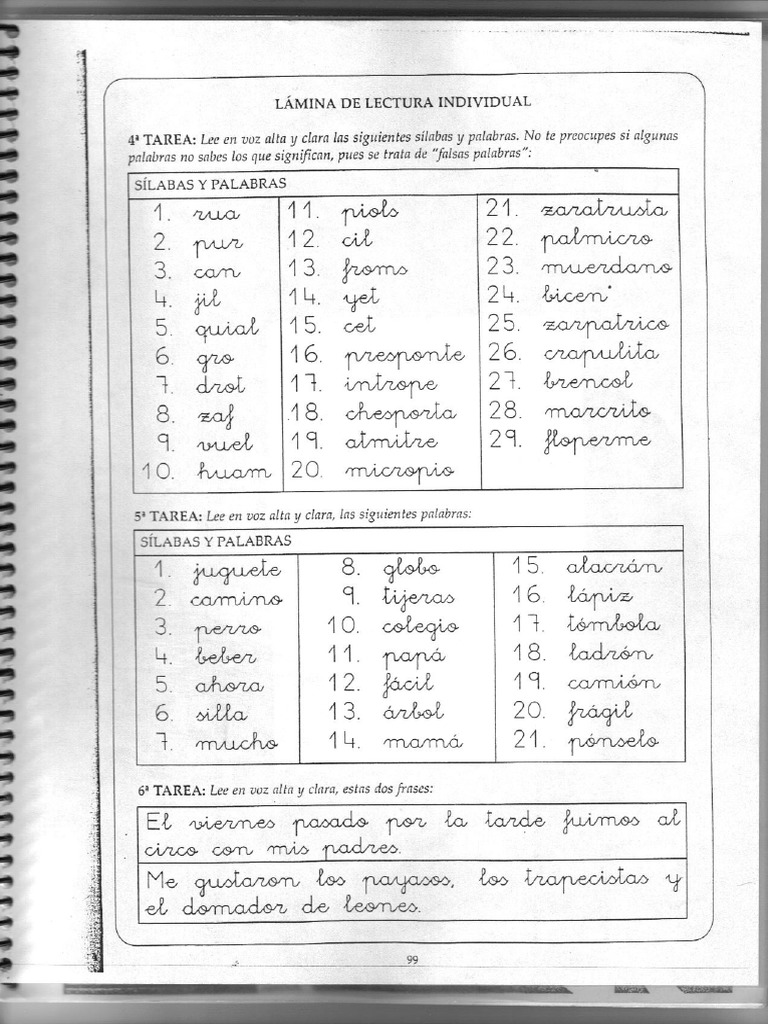 LÁMINA DE LECTURA INDIVIDUAL
4ª TAREA: Lee en voz alta y clara las siguientes sílabas y palabras. No te preocupes si algunas
palabras no sabes los que significan, pues se trata de "falsas palabras":
SÍLABAS Y PALABRAS
1. rua
2. pur
3. can
4. jil
5. quial
6. gro
7. drot
8. zaf
9. vuel
10. huam
11. piols
12. cil
13. froms
14. yet
15. cet
16. presponte
17. intrope
18. chesporta
19. atmitre
20. micropio
21. zaratrusta
22. palmicro
23. muerdano
24. bicen
25. zarpatrico
26. crapulita
27. brencol
28. marcrito
29. floperme
5ª TAREA: Lee en voz alta y clara, las siguientes palabras:
SÍLABAS Y PALABRAS
1. juguete
2. camino
3. perro
4. beber
5. ahora
6. silla
7. mucho
8. globo
9. tijeras
10. colegio
11. papá
12. fácil
13. árbol
14. mamá
15. alacrán
16. lápiz
17. tómbola
18. ladrón
19. camión
20. frágil
21. pónselo
6ª TAREA: Lee en voz alta y clara, estas dos frases:
El viernes pasado por la tarde fuimos al
circo con mis padres.
Me gustaron los payasos, los trapecistas y
el domador de leones.
99